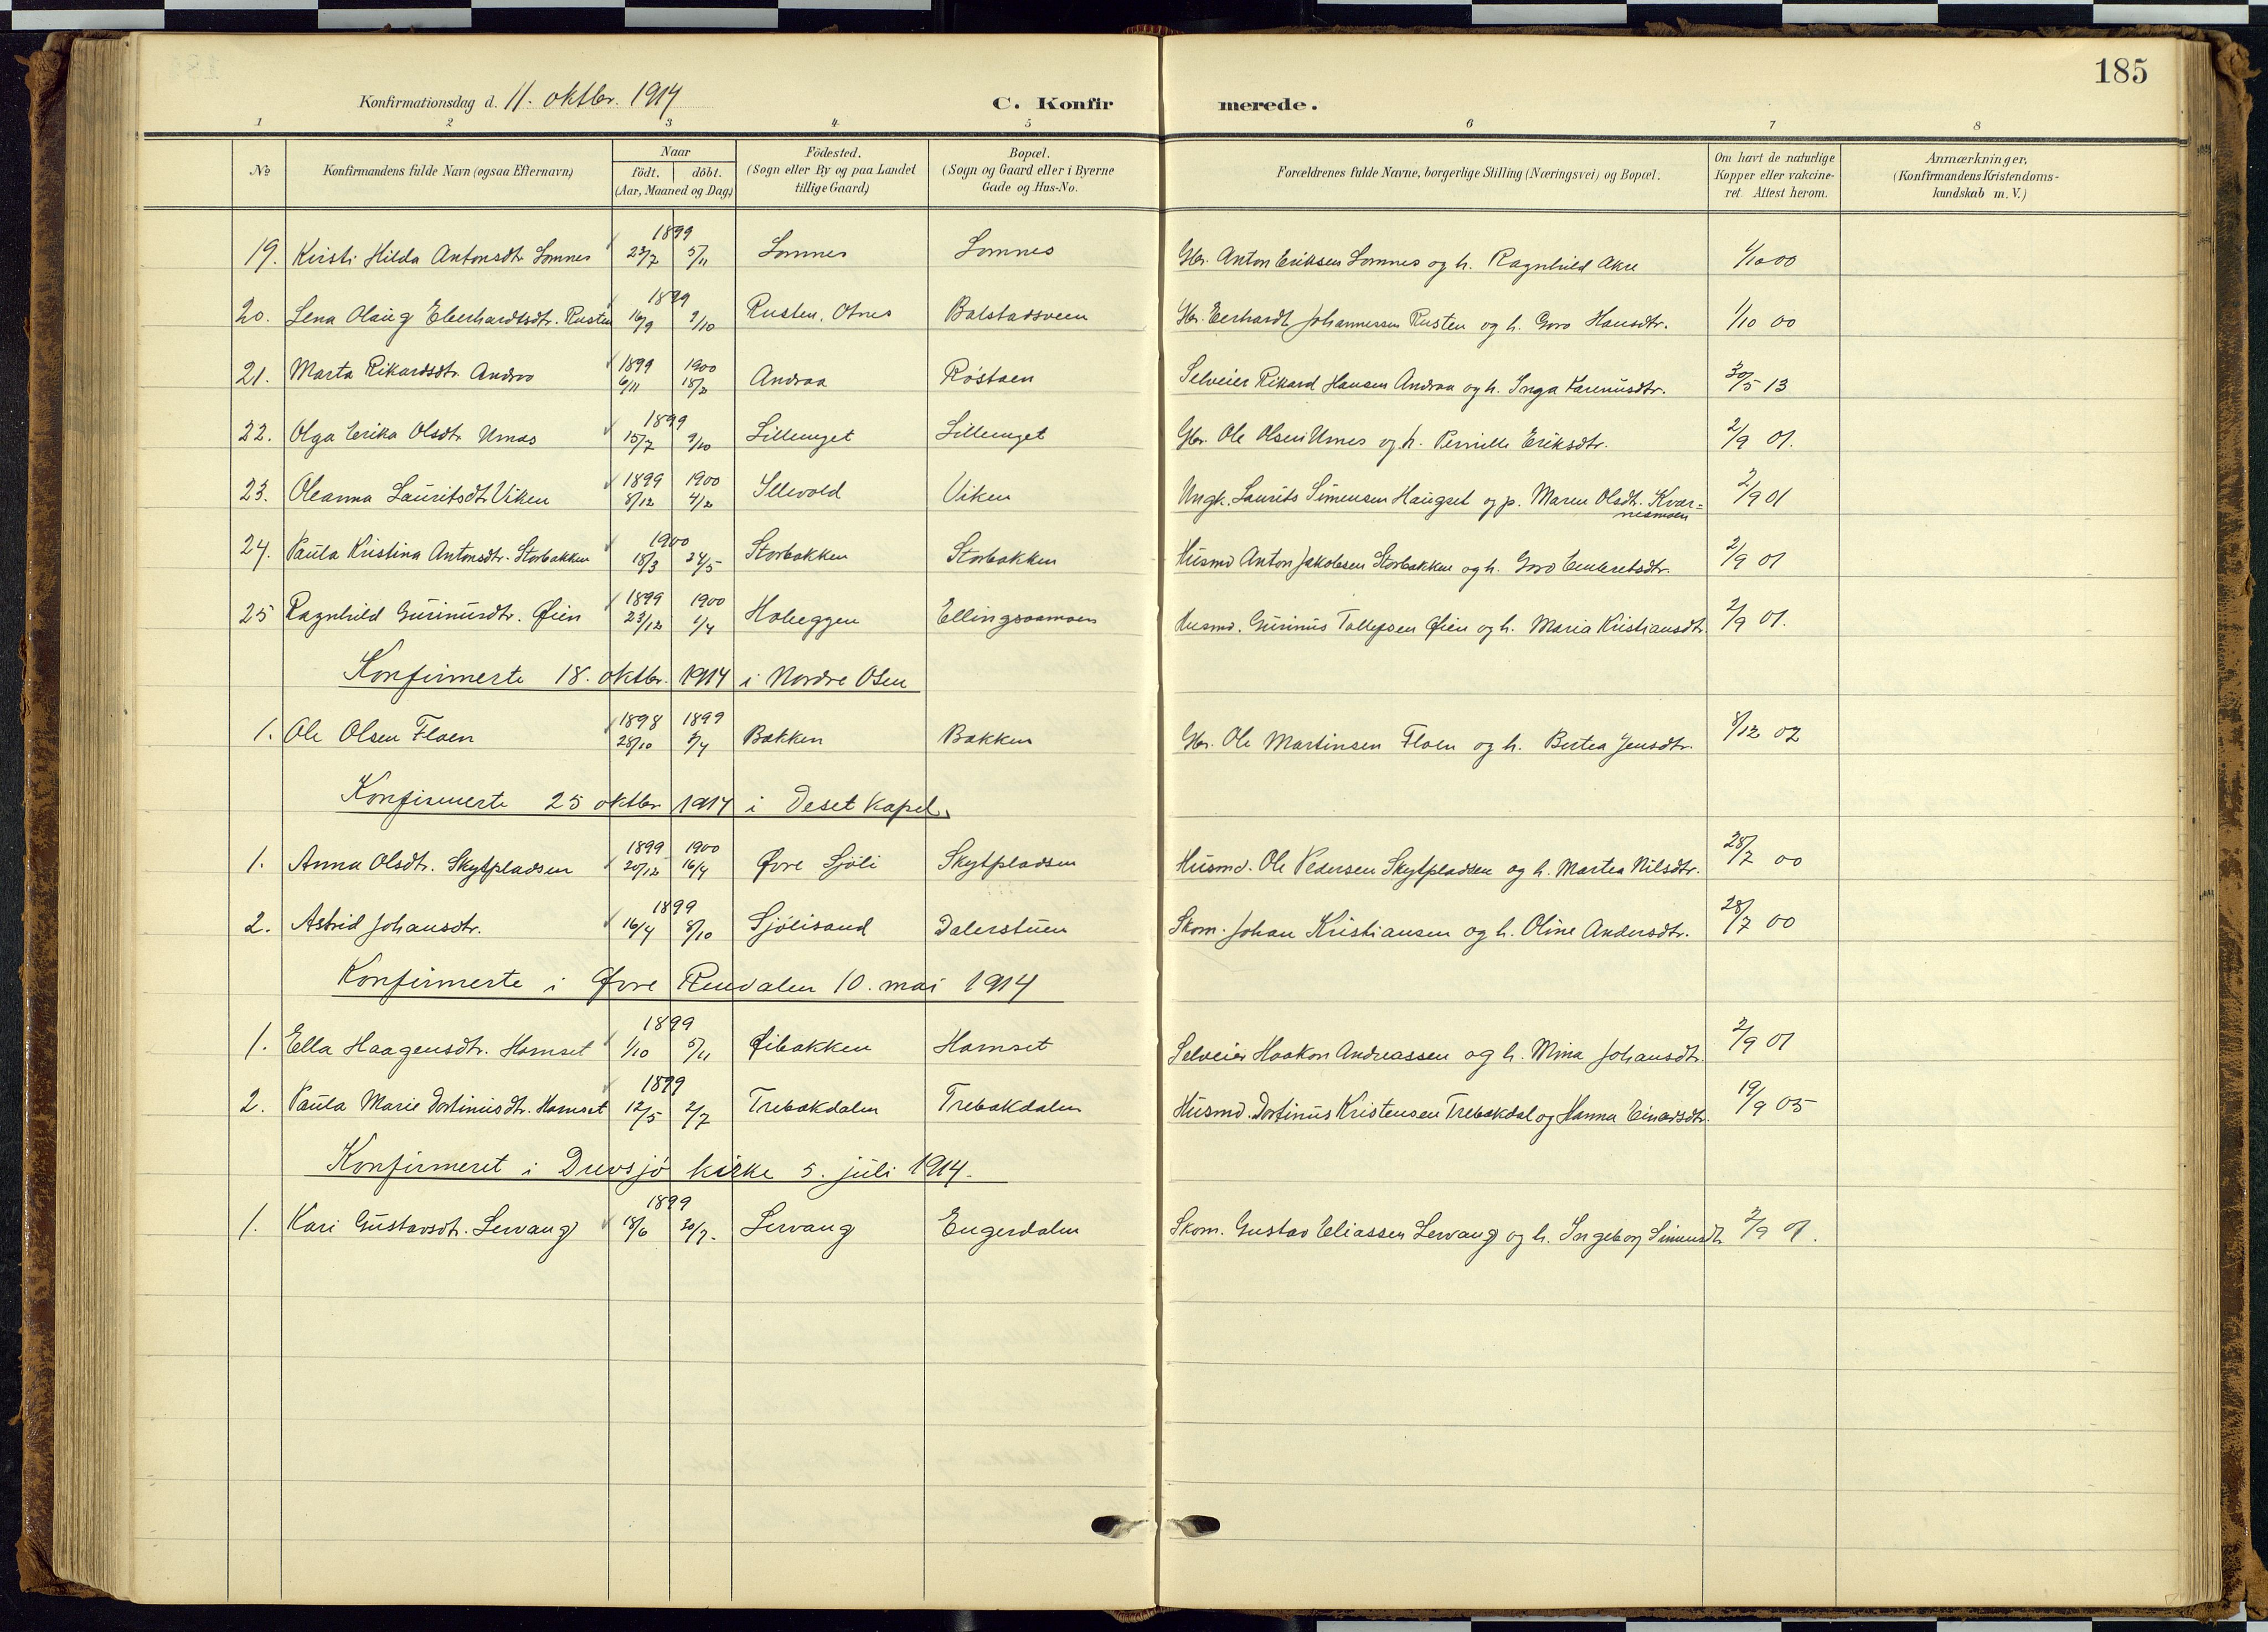 185
Konfirmationsdag d. 11. oktbr. 1914 C. Konfirmerede.
1 2 3 4 5 6 7 8
No Konfirmandens fulde Navn (ogsaa Efternavn) Naar födt. döbt. (Aar, Maaned og Dag) Födested. (Sogn eller By og paa Landet tillige Gaard) Bopæl. (Sogn og Gaard eller i Byerne Gade og Hus-No. Forældrenes fulde Navne, borgerlige Stilling (Næringsvei) og Bopæl. Om havt de naturlige Kopper eller vakcineret. Attest herom. Anmærkninger. (Konfirmandens Kristendomskundskab m. V.)
19. Kirsti Hilda Antonsdtr. Lomnes 1899 23/7 5/11 Lomnes Lomnes Gbr. Anton Eriksen Lomnes og h. Ragnhild Akre 1/10 00
20. Lena Olaug Eberhardtsdtr. Rusten 1899 16/9 9/10 Rusten, Otnes Balstadsveen Gbr. Eerhardt Johannessen Rusten og h. Goro Hansdtr. 1/10 00
21. Marta Rikardsdtr. Andraa 1899 6/11 1900 18/2 Andraa Röstaen Selveier Rikard Hansen Andraa og h. Inga Karenusdtr. 30/5 13
22. Olga Erika Olsdtr. Urnes 1899 15/7 9/10 Lillenget Lillenget Gbr. Ole Olsen Urnes og h. Pernille Eriksdtr. 2/9 01.
23. Oleanna Lauritsdtr. Viken 1899 8/12 1900 4/2 Sllevold Viken Ungk. Laurits Simensen Haugset og p. Maren Olsdtr. Kvær=
nesmoen 2/9 01
24. Paula Kristina Antonsdtr. Storbakken 1900 18/3 24/5 Storbakken Storbakken Husmd Anton Jakobsen Storbakken og h. Goro Embretsdtr. 2/9 01
25 Ragnhild Gurinusdtr. Øien 1899 23/12 1900 1/4 Holeggen Ellingsaamoen Husmd. Gurinus Tollefsen Øien og h. Maria Kristiansdtr. 2/9 01.
Konfirmerte 18. oktbr. 1914 i Nordre Osen
1. Ole Olsen Floen 1898 28/10 1899 3/4 Bakken Bakken Gbr. Ole Martinsen Floen og h. Bertea Jensdtr. 8/12 02
Konfirmerte 25 oktbr 1914 i Deset kapel.
1. Anna Olsdtr. Skytpladsen 1899 20/12 1900 16/4 Øvre Sjöli Skytpladsen Husmd. Ole Pedersen Skytpladsen og h. Martea Nilsdtr. 28/7 00
2. Astrid Johansdtr. 1899 16/4 8/10 Sjölisand Dalerstuen Skom. Johan Kristiansen og h. Oline Andersdtr. 28/7 00
Konfirmerte i Øvre Rendalen 10. mai 1914
1. Ella Haagensdtr. Hornset 1899 1/10 5/11 Øibakken Hornset Selveier Haakon Andreassen og h. Mina Johansdtr. 2/9 01
2. Paula Marie Dortinusdtr. Hornset 1899 12/5 2/7 Trebakdalen Trebakdalen Husmd. Dortinus Kristensen Trebakdal og Hanna Einarsdtr. 19/9 05
Konfirmeret i Drevsjö kirke 5. juli 1914.
1. Kari Gustavsdtr. Lervang 1899 18/6 30/7. Lervang Engerdalen Skom. Gustav Eliassen Lervang og h. Ingeborg Simensdtr. 2/9 01.